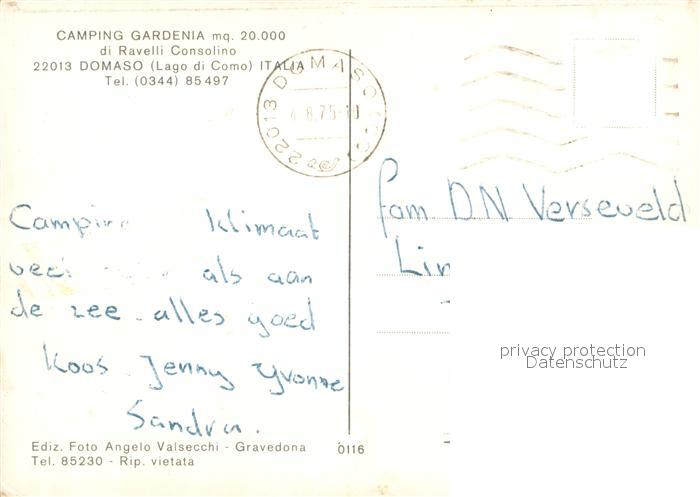 CAMPING GARDENIA mq. 20.000
di Ravelli Consolino
22013 DOMASO (Lago di Como) ITALIA
Tel. (0344) 85497
22013 DOMASO
8.75
Klimaat
als aan
de zee. alles goed
Koos Jenny Yvonne
Sandra.
fam D.N Verseveld
Lin
privacy protection
Datenschutz
Ediz. Foto Angelo Valsecchi - Gravedona
0116
Tel. 85230 - Rip. vietata